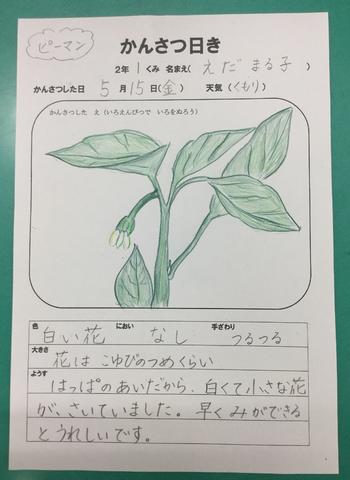 ピーマン
かんさつ日き
2年 1 くみ 名まえ( えだ まる子 )
かんさつした日 5 月 15 日(金) 天気(くもり)
かんさつした え(いろえんぴつで いろをぬろう)
色 白い花 におい なし 手ざわり つるつる
大きさ 花は こゆびのつめくらい
ようす はっぱのあいだから、白くて小さな花
が、さいていました。早くみができる
とうれしいです。